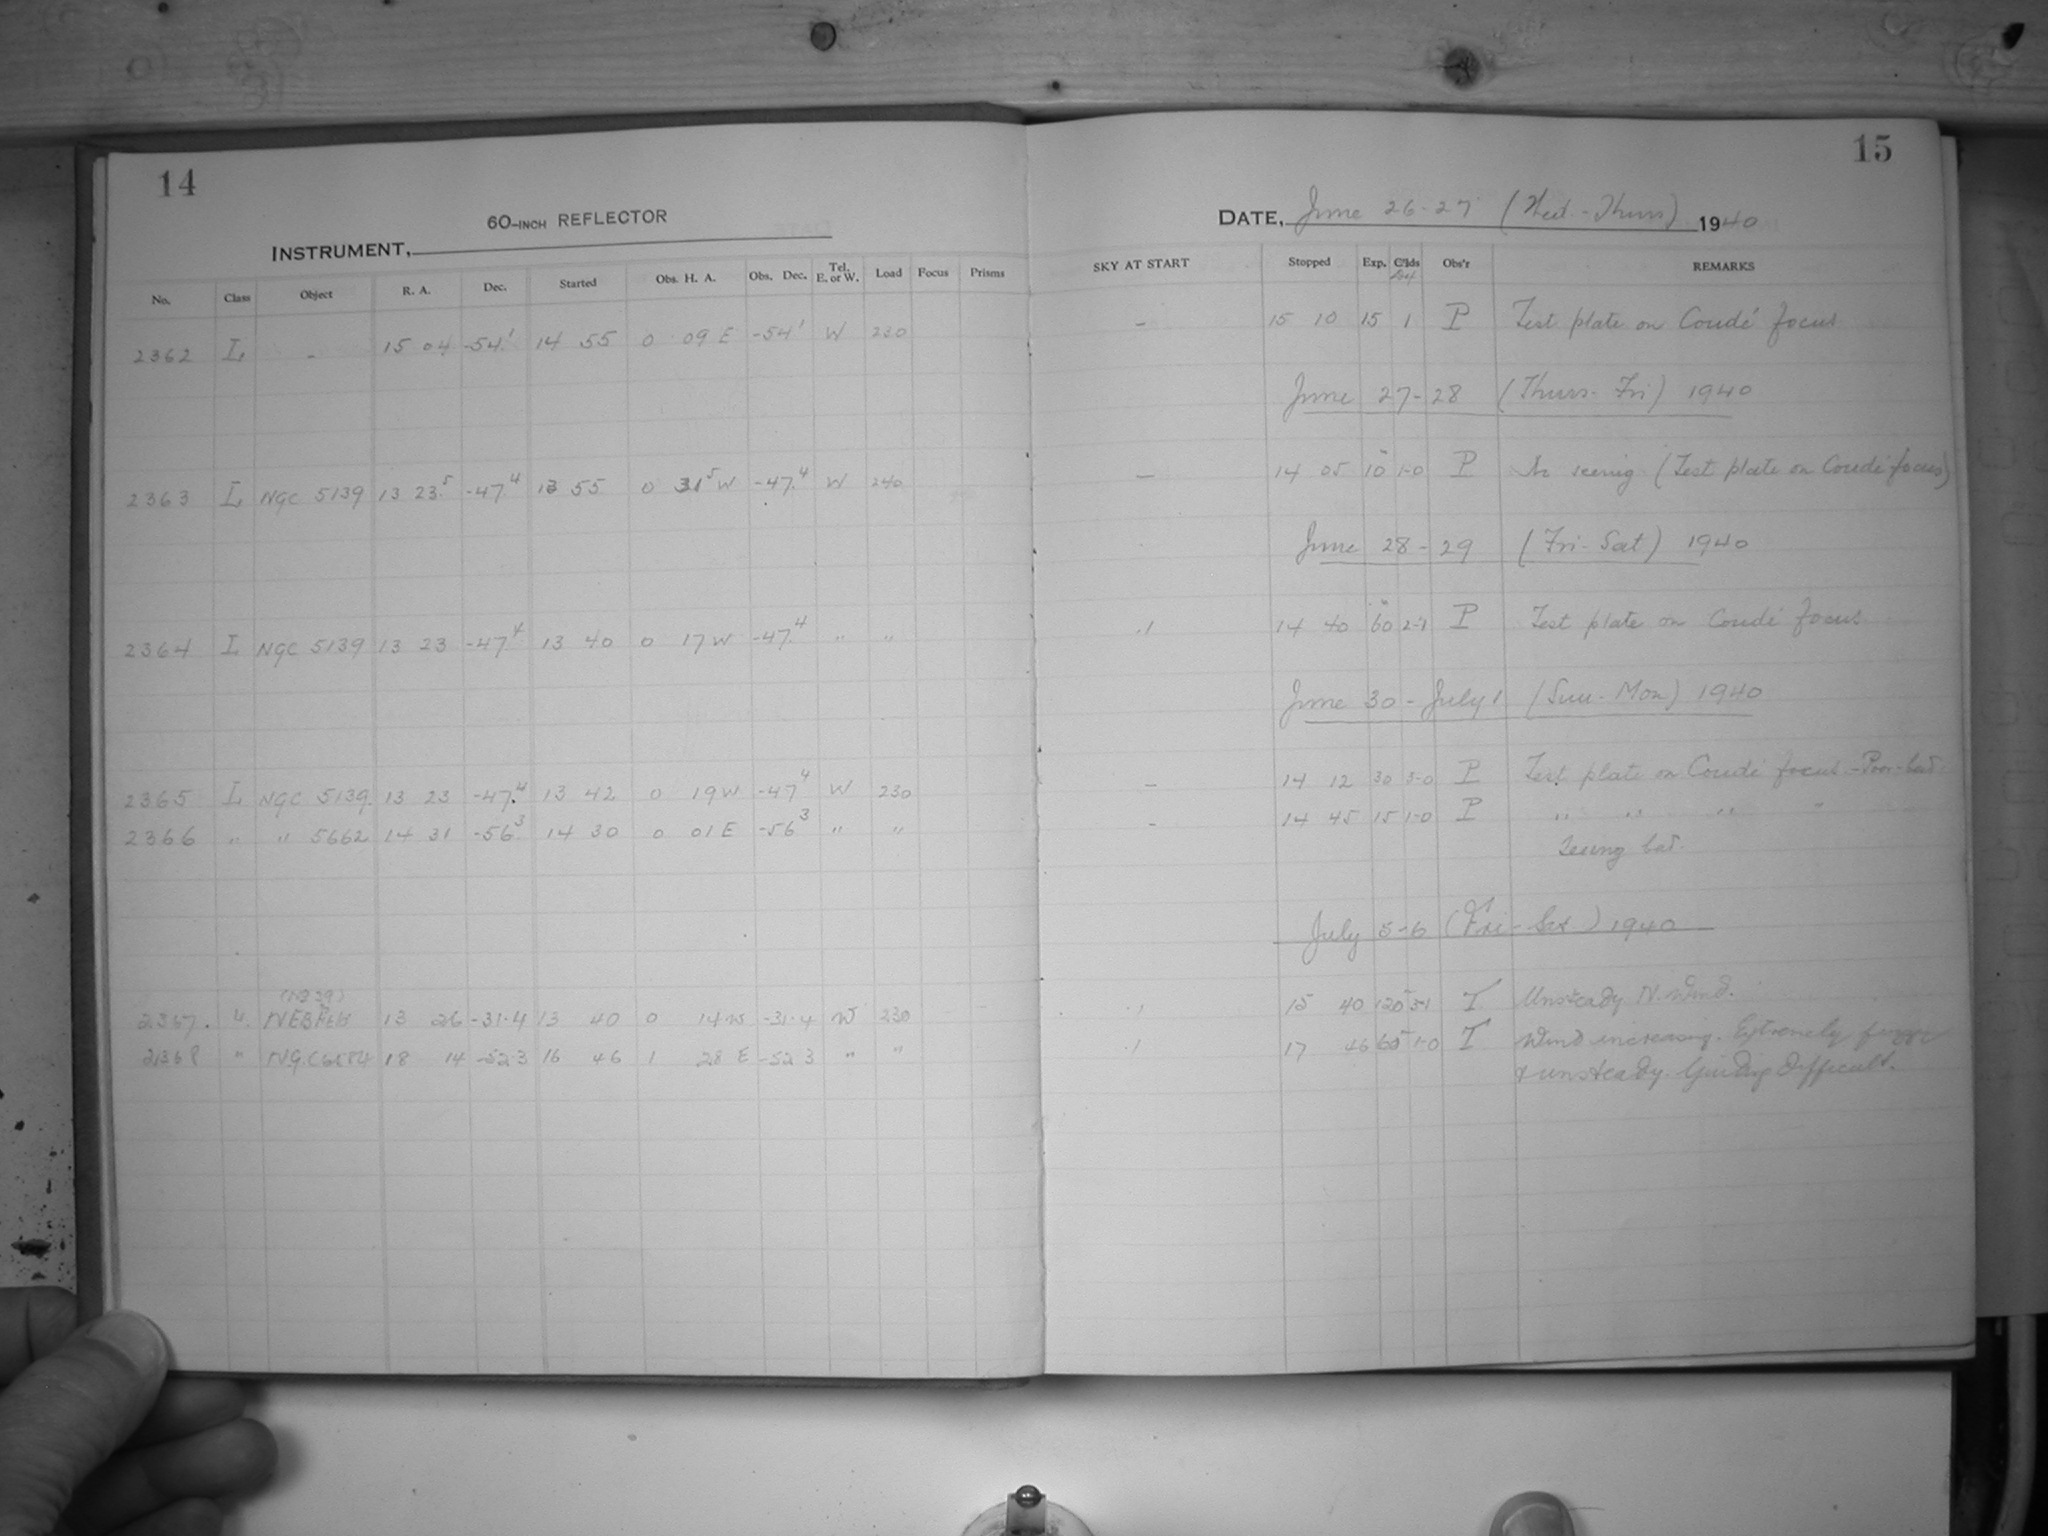 14
60-INCH REFLECTOR
INSTRUMENT,
No. Class Object R. A. Dec. Started Obs. H. A. Obs. Dec. Tel. E. or W. Load Focus Prisms
2362 I, - 15 04 -54.1 14 55 0 09 E -54.1 W 230
2363 I, NGC 5139 13 23.5 -47.4 13 55 0 31.5 W -47.4 W 240
2364 I, NGC 5139 13 23 -47.4 13 40 0 17 W -47.4 " "
2365 I, NGC 5139 13 23 -47.4 13 42 0 19 W -47.4 W 230
2366 " " 5662 14 31 -56.3 14 30 0 01 E -56.3 " "
2367. 13 26 -31.4 13 40 0 14 W -31.4 W 230
2368 " 18 14 -52.3 16 46 1 28 E -52 3 " "
15
DATE, June 26-27 (Wed.-Thurs) 1940
SKY AT START Stopped Exp. C'lds Obs'r REMARKS
- 15 10 15 1 P Test plate on Coudé focus
June 27-28 (Thurs-Fri) 1940
- 14 05 10 1-0 P seeing (Test plate on Coudé focus)
June 28-29 (Fri-Sat) 1940
.1 14 40 60 2-1 P Test plate on Coudé focus
June 30 - July 1 (Sun-Mon) 1940
- 14 12 30 3-0 P Test plate on Coudé focus - Poor-bad
- 14 45 15 1-0 P " " " "
Seeing bad.
July 5-6 (Fri-Sat) 1940
.1 15 40 120 3-1 T. Unsteady N. Wind.
.1 17 46 60 1-0 T Wind increasing. Extremely fuzzy
& unsteady. Guiding difficult.